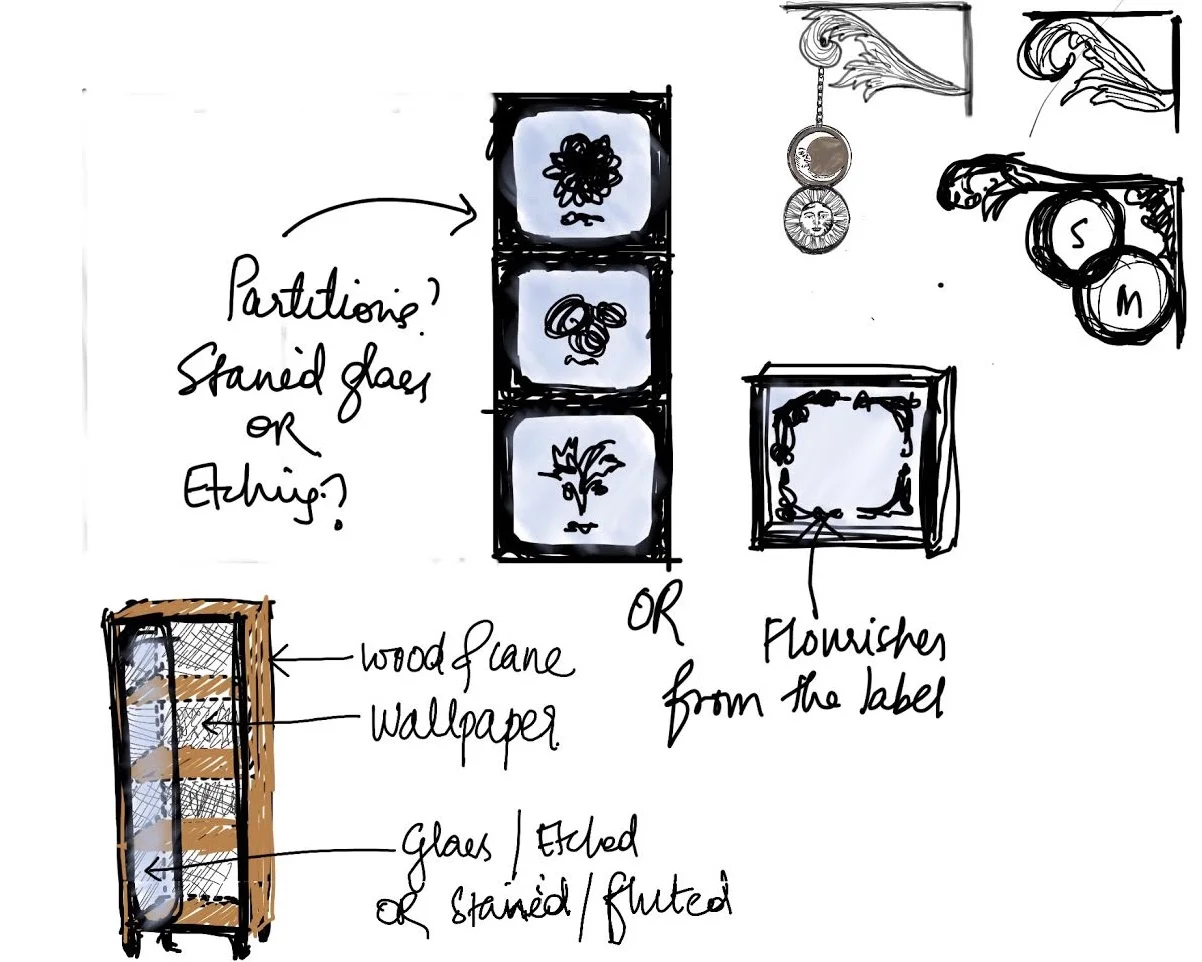 S
M
Partitions?
Stained glass
OR
Etching?
OR
Flourishes
from the label
wood & cane
Wallpaper
Glass / Etched
OR Stained / fluted